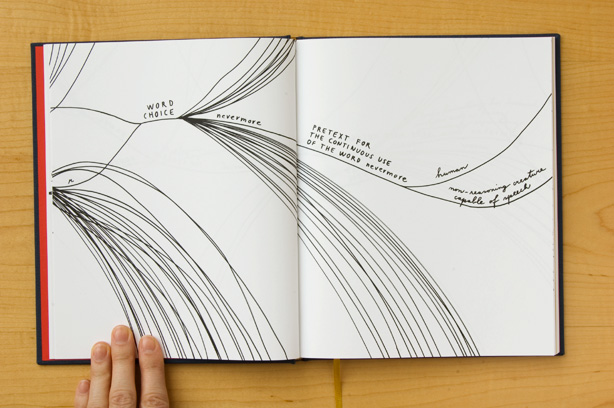 WORD
CHOICE
nevermore
r
PRETEXT FOR
THE CONTINUOUS USE
OF THE WORD nevermore
human
non-reasoning creature
capable of speech